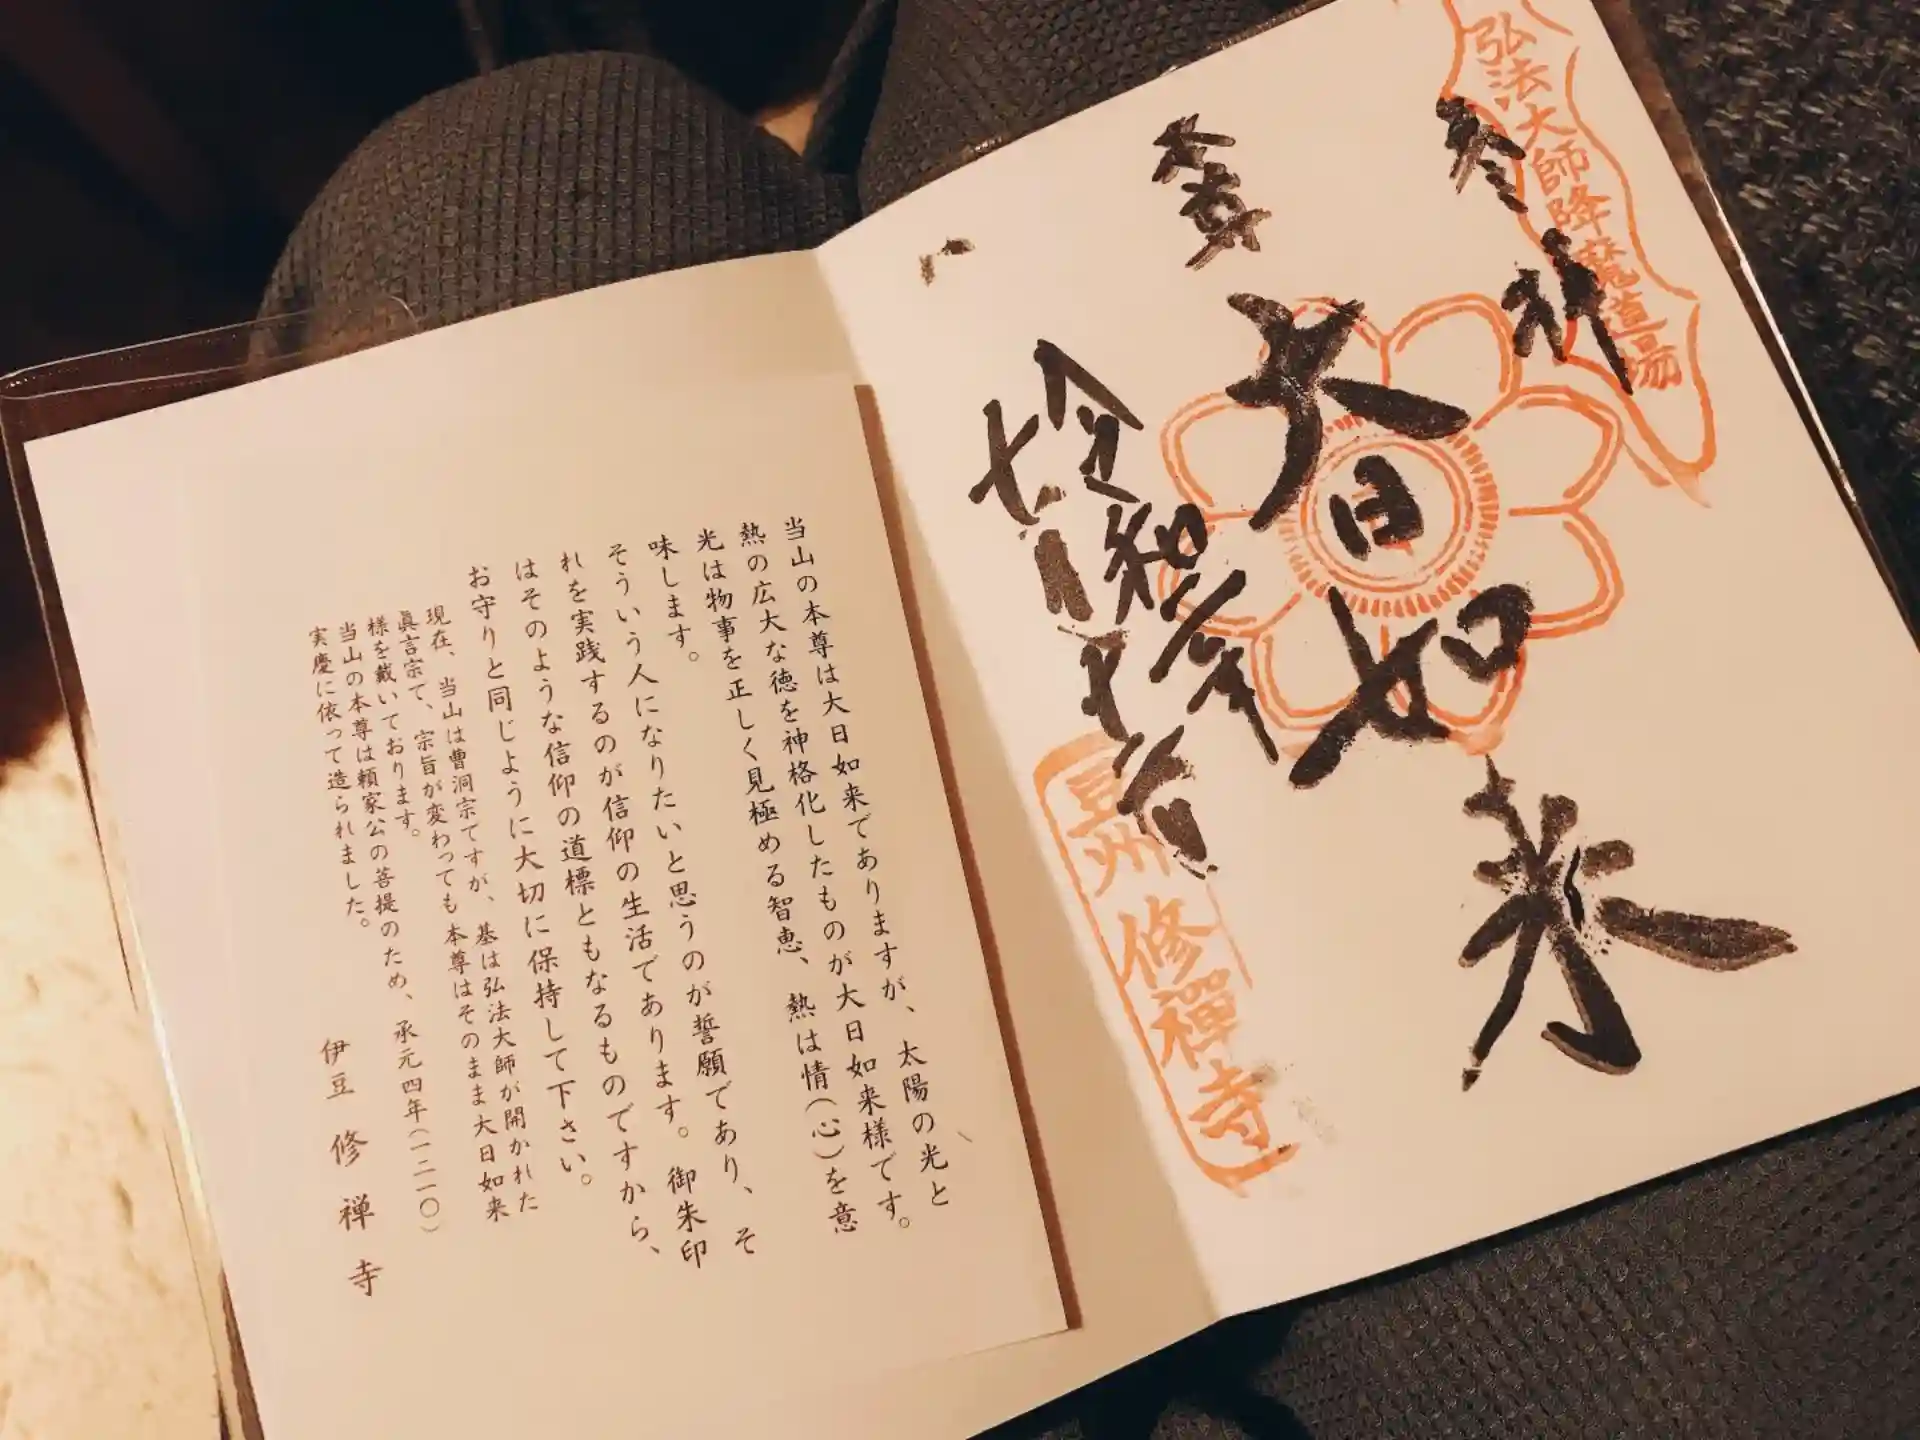 弘法大師降魔道場
参拝
本尊
大日如来
令和
豆州
修禪寺
当山の本尊は大日如来でありますが、太陽の光と
熱の広大な徳を神格化したものが大日如来様です。
光は物事を正しく見極める智恵、熱は情(心)を意
味します。
そういう人になりたいと思うのが誓願であり、そ
れを実践するのが信仰の生活であります。御朱印
はそのような信仰の道標ともなるものですから、
お守りと同じように大切に保持して下さい。
現在、当山は曹洞宗ですが、基は弘法大師が開かれた
眞言宗で、宗旨が変わっても本尊はそのまま大日如来
様を戴いております。
当山の本尊は頼家公の菩提のため、承元四年(一二一〇)
実慶に依って造られました。
伊豆 修禅寺